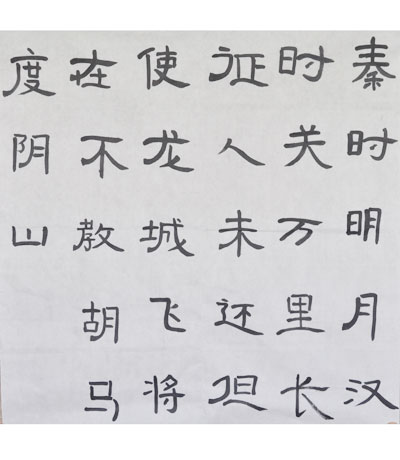 秦时明月汉
时关万里长
征人未还但
使龙城飞将
在不教胡马
度阴山